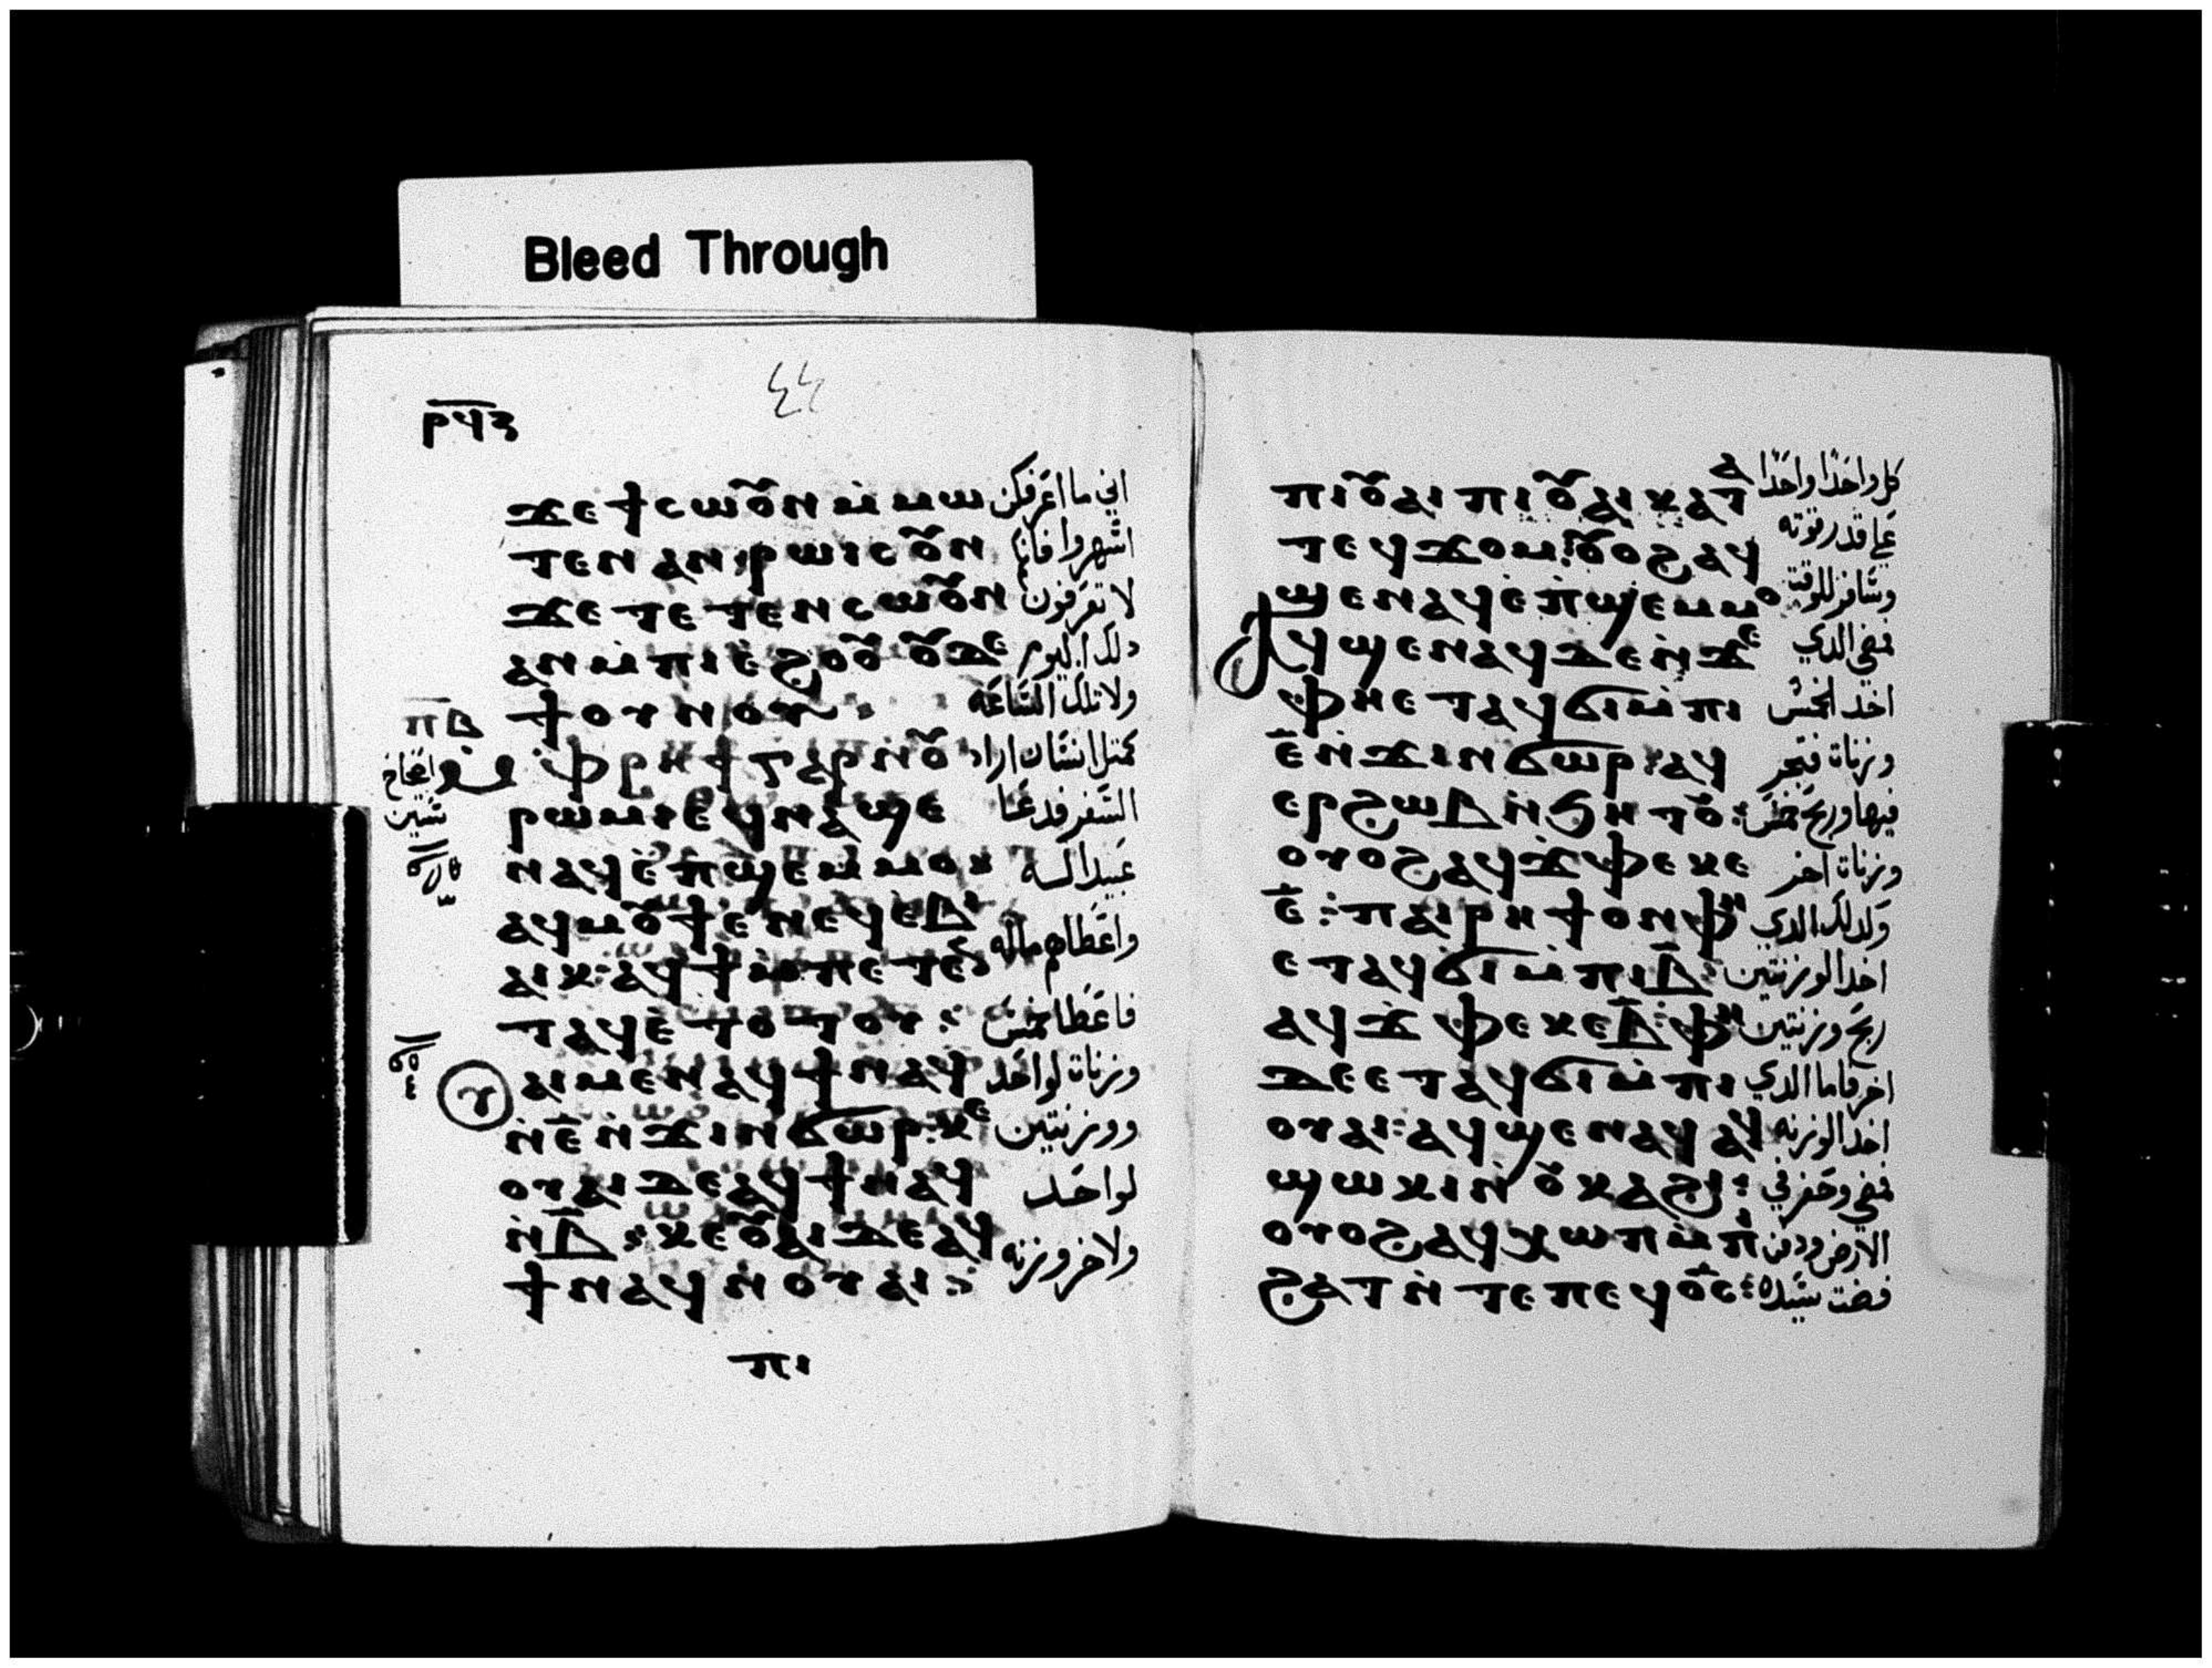 Bleed Through
ⲣϥⲍ
ϫⲉ ϯⲥⲱⲟⲩⲛ ⲙ̇ⲙⲱ اني ما اعرفكن
ⲧⲉⲛ ⲁⲛ ⲣⲱⲓⲥ ⲟⲩⲛ اشهروا فانكم
ϫⲉ ⲧⲉⲧⲉⲛⲥⲱⲟⲩⲛ لا تعرفون
ⲁⲛ ⲙ̇ⲡⲓⲉ̇ϩⲟⲟⲩ ⲟⲩⲇⲉ دلك اليوم
ϯⲟⲩⲛⲟⲩ ولا تلك الساعه
ⲡⲃ
ⲙ̇ⲫⲣⲏϯ ⲅⲁⲣ ⲛ̇ⲟⲩ كمثل انسان اراد
اصحاح
ⲣⲱⲙⲓ ⲉϥⲛⲁϣⲉ السفر فدعا
ⲛⲁϥ ⲉ̇ⲡϣⲉⲙⲙⲟ عبيداله
ⲁϥⲙⲟⲩϯ ⲉ̇ⲛⲉϥⲉⲃⲓ
ⲁⲓⲕ ⲁϥϯ ⲙ̇ⲡⲉⲧⲉⲛ واعطاهم ماله
ⲧⲁϥ ⲉ̇ⲧⲟⲧⲟⲩ فاعطا خمس
ⲟⲩⲁⲓ ⲙⲉⲛ ⲁϥϯ ⲛⲁϥ وزنات لواحد
ⲛ̇ⲉ̄ ⲛ̇ϫⲓⲛϭⲱⲣ ⲕⲉ ووزنتين
ⲟⲩⲁⲓ ⲇⲉ ⲁϥϯ ⲛⲁϥ لواحد
ⲛ̇ⲃ̄ ⲕⲉⲟⲩⲁⲓ ⲇⲉ ⲁϥ
ϯ ⲛⲁϥ ⲛ̇ⲟⲩⲁⲓ ولاخر وزنه
ⲡⲓ
ⲡⲓⲟⲩⲁⲓ ⲡⲓⲟⲩⲁⲓ ⲕⲁⲧⲁ كل واحدًا واحدًا
ⲧⲉϥϫⲟⲙ ⲟⲩⲟϩ ⲁϥ علي قدر قوته
ϣⲉⲛⲁϥ ⲉ̇ⲡϣⲉⲙⲙⲟ وسافر للوقت
ⲁϥϣⲉⲛⲁϥ ⲇⲉ ⲛ̇ϫⲉ فمضي الدي
ⲫⲏⲉⲧⲁϥϭⲓ ⲙ̇ⲡⲓ اخد الخمس
ⲉ̄ ⲛ̇ϫⲓⲛϭⲱⲣ ⲁϥ وزنات فتجر
ⲉⲣϩⲱⲃ ⲛ̇ϧⲏⲧⲟⲩ فيها وربح خمس
ⲟⲩⲟϩ ⲁϥϫⲫⲉ ⲕⲉ وزنات اخر
ⲉ̄ ⲡⲁⲓⲣⲏϯ ⲟⲛ ⲫⲏ ولدلك الدي
ⲉⲧⲁϥϭⲓ ⲙ̇ⲡⲓⲃ̄ اخد الوزنتين
ⲁϥϫⲫⲉ ⲕⲉⲃ̄ ⲫⲏ ربح وزنتين
ⲇⲉ ⲉⲧⲁϥϭⲓ ⲙ̇ⲡⲓ اخر فاما الدي
ⲟⲩⲁⲓ ⲁϥϣⲉⲛⲁϥ ⲁϥ اخد الوزنه
ϣⲱⲕⲓ ⲛ̇ⲟⲩⲕⲁϩⲓ فمضي وحفر في
ⲟⲩⲟϩ ⲁϥⲭⲱⲡ ⲙ̇ⲡⲓ الارض ودفن
ϩⲁⲧ ⲛ̇ⲧⲉ ⲡⲉϥⲟ̅ⲥ̅ فضت سيده